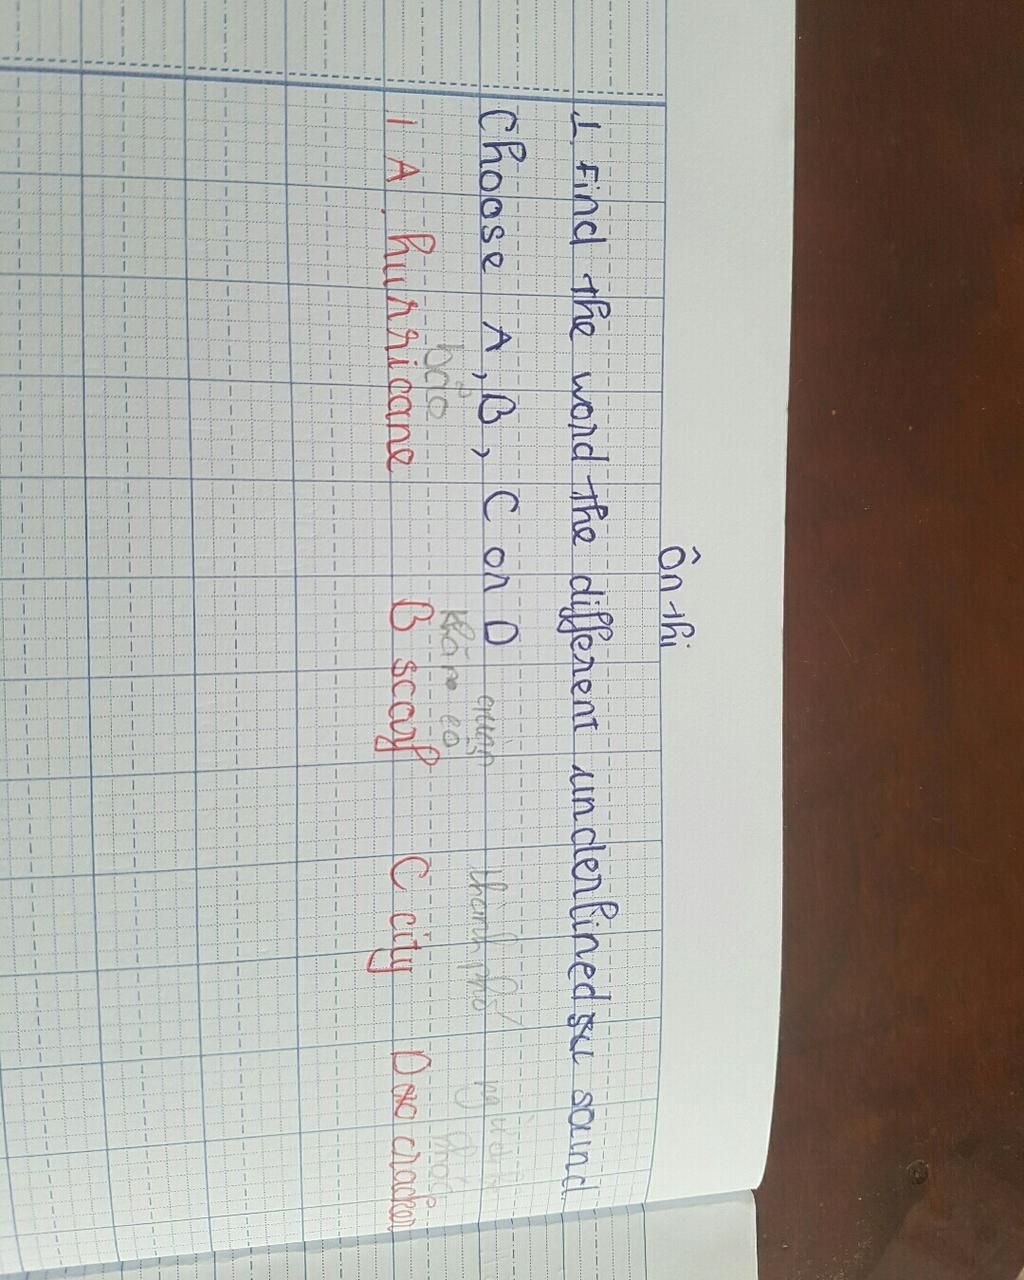 Ôn thi
1, Find the word the different underlined sound.
Choose A, B, C or D
quàng thành phố
bão khăn cổ
1 A, hurricane B scarf C city D cracker